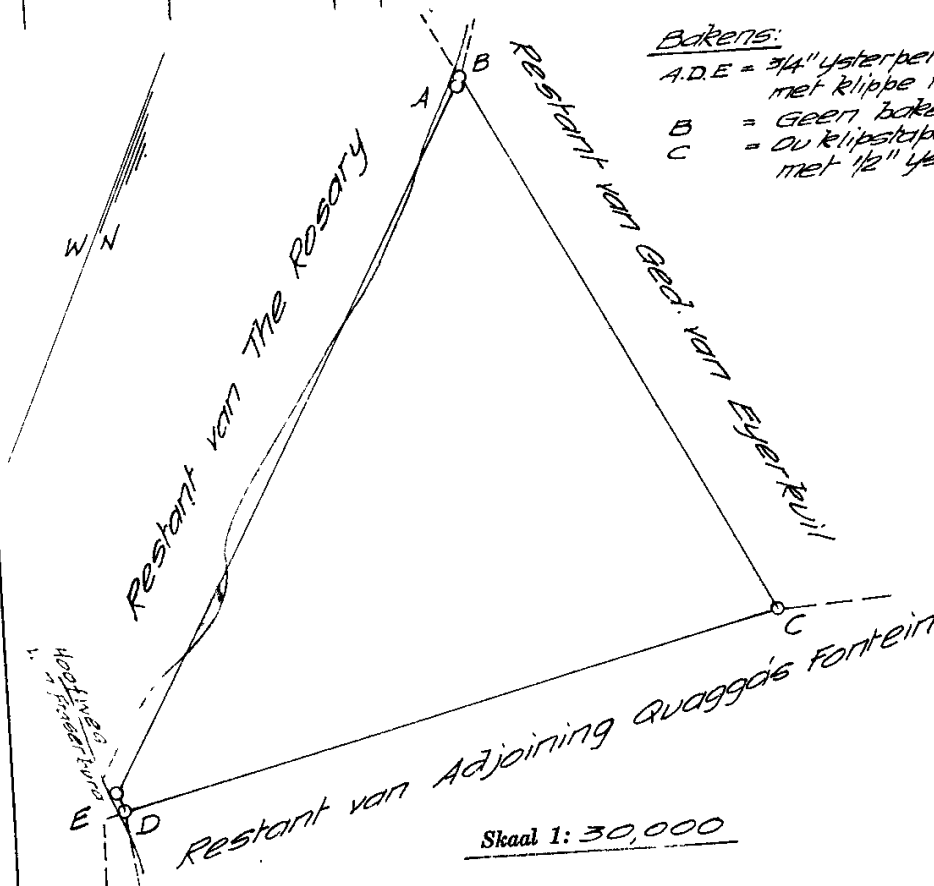 Bakens:
A.D.E = 3/4" ysterpen
met klippe
B = Geen
C = Ou
met 1/2"
B
A
W N
Restant van The Rosary
Restant van Ged. van Eyerkuil
C
Hoofweg
E
D
Restant van Adjoining Quagga's Fontein
Skaal 1: 30,000